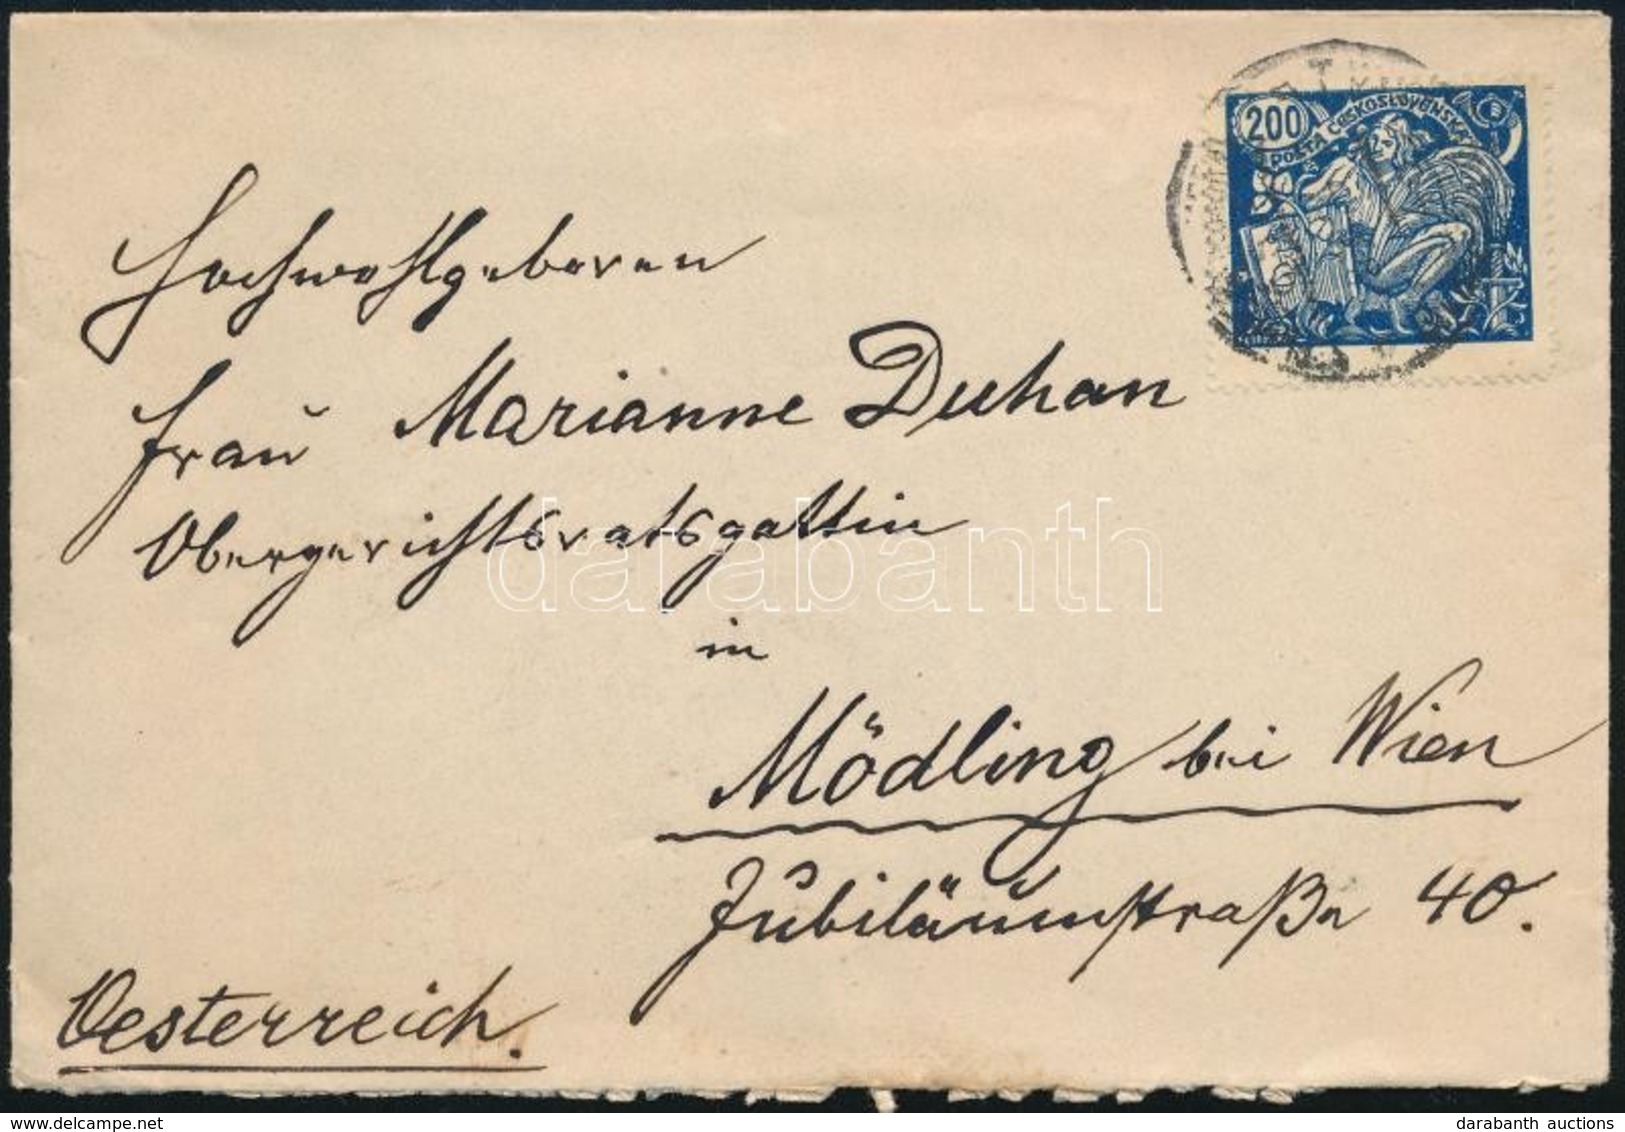 200
POŠTA ČESKOSLOVENSKÁ
Hochwohlgeboren
Frau Marianne Duhan
Obergerichtsratsgattin
in
Mödling bei Wien
Jubiläumstraße 40.
Oesterreich.
darabanth
delcampe.net
darabanth auctions